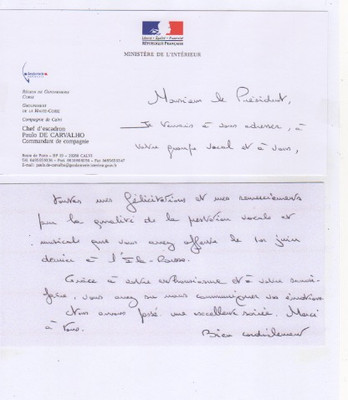 Liberté • Égalité • Fraternité
RÉPUBLIQUE FRANÇAISE
MINISTÈRE DE L'INTÉRIEUR
RÉGION DE GENDARMERIE
CORSE
GROUPEMENT
DE LA HAUTE-CORSE
Compagnie de Calvi
Chef d'escadron
Paulo DE CARVALHO
Commandant de compagnie
Monsieur le Président,
Je tenais à vous adresser, à
votre groupe vocal et à vous,
toutes mes félicitations et mes remerciements
pour la qualité de la prestation vocale et
musicale que vous avez offerte le 1er juin
dernier à l'Ile-Rousse.
Grâce à votre enthousiasme et à votre savoir-
faire, vous avez su nous communiquer vos émotions.
Nous avons passé une excellente soirée. Merci
à tous.
Bien cordialement